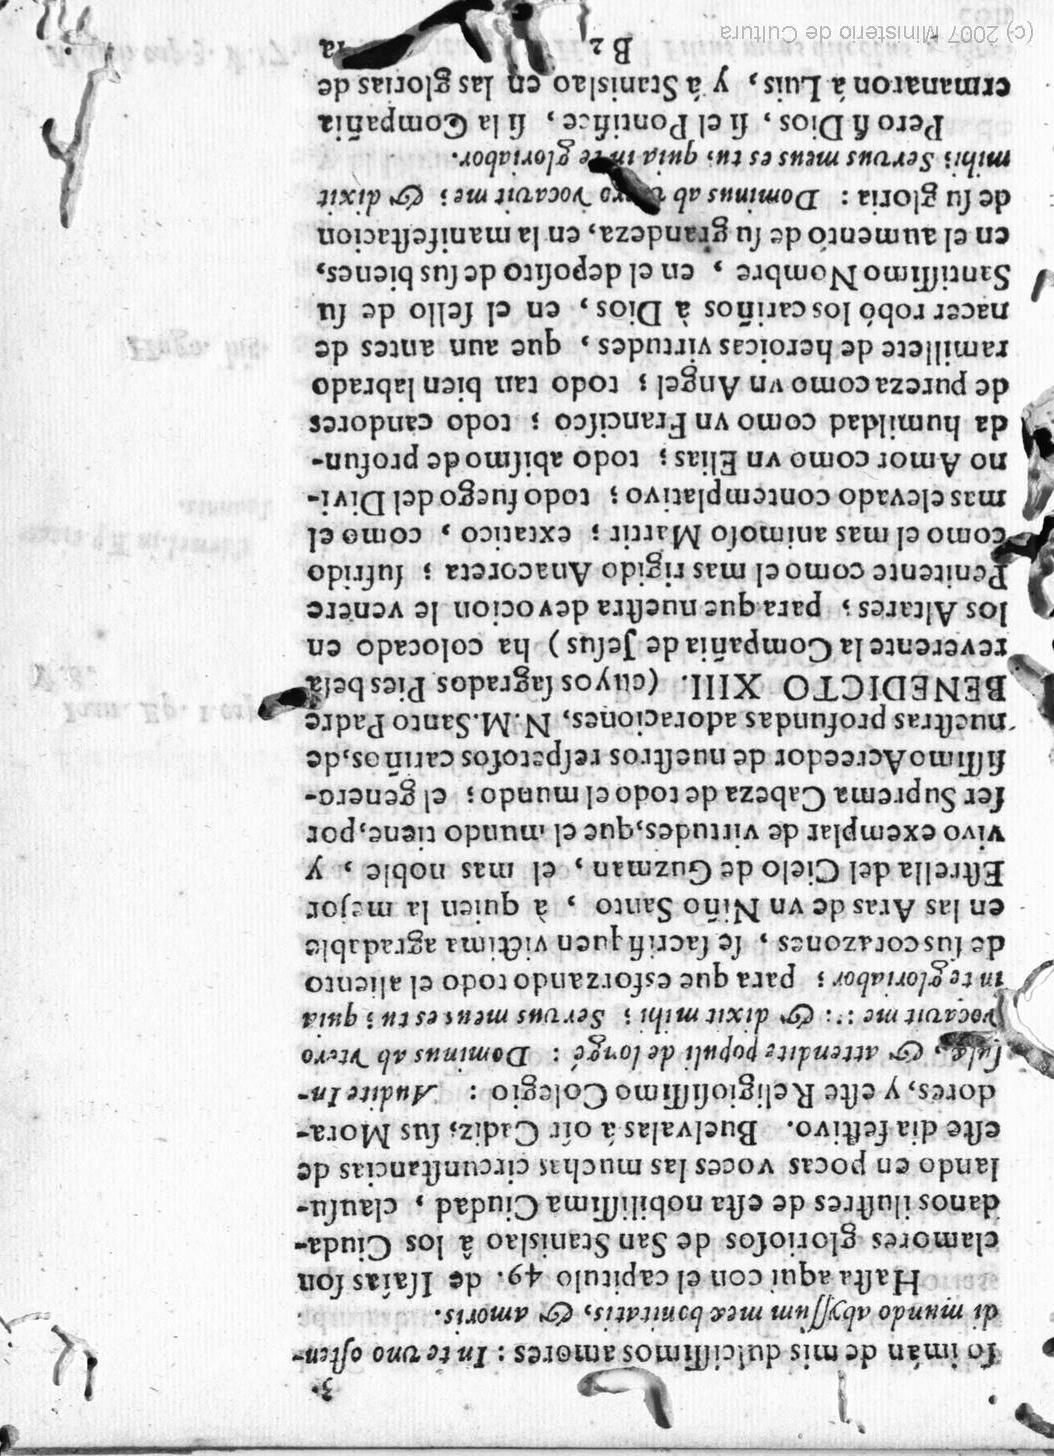 3.
so imán de mis dulcissimos amores: In te uno osten-
di mundo abyssum meæ bonitatis, & amoris.
Hasta aqui con el capitulo 49. de Isaías son
clamores gloriosos de San Stanislao â los Ciuda-
danos ilustres de esta nobilissima Ciudad, clausu-
lando en pocas voces las muchas circunstancias de
este dia festivo. Buelvalas á oír Cadiz; sus Mora-
dores, y este Religiosissimo Colegio: Audite In-
sulæ, & attendite populi de longé: Dominus ab Vtero
vocavit me::: & dixit mihi; Servus meus es tu; quia
in te gloriabor; para que esforzando todo el aliento
de sus corazones, se sacrifiquen victima agradable
en las Aras de vn Niño Santo, à quien la mejor
Estrella del Cielo de Guzman, el mas noble, y
vivo exemplar de virtudes, que el mundo tiene, por
ser Suprema Cabeza de todo el mundo; el genero-
sissimo Acreedor de nuestros respetosos cariños, de
nuestras profundas adoraciones, N. M. Santo Padre
BENEDICTO XIII. (cuyos sagrados Pies besa
reverente la Compañia de Jesus) ha colocado en
los Altares; para que nuestra devocion le venere
Penitente como el mas rigido Anacoreta; sufrido
como el mas animoso Martir; extatico, como el
mas elevado contemplativo; todo fuego del Divi-
no Amor como vn Elias; todo abismo de profun-
da humildad como vn Francisco; todo candores
de pureza como vn Angel; todo tan bien labrado
ramillete de heroicas virtudes, que aun antes de
nacer robó los cariños à Dios, en el sello de su
Santissimo Nombre, en el deposito de sus bienes,
en el aumento de su grandeza, en la manifestacion
de su gloria: Dominus ab Vtero vocavit me; & dixit
mihi; Servus meus es tu; quia in te gloriabor.
Pero si Dios, si el Pontifice, si la Compañia
ermanaron á Luis, y á Stanislao en las glorias de
B 2 la
(c) 2007 Ministerio de Cultura